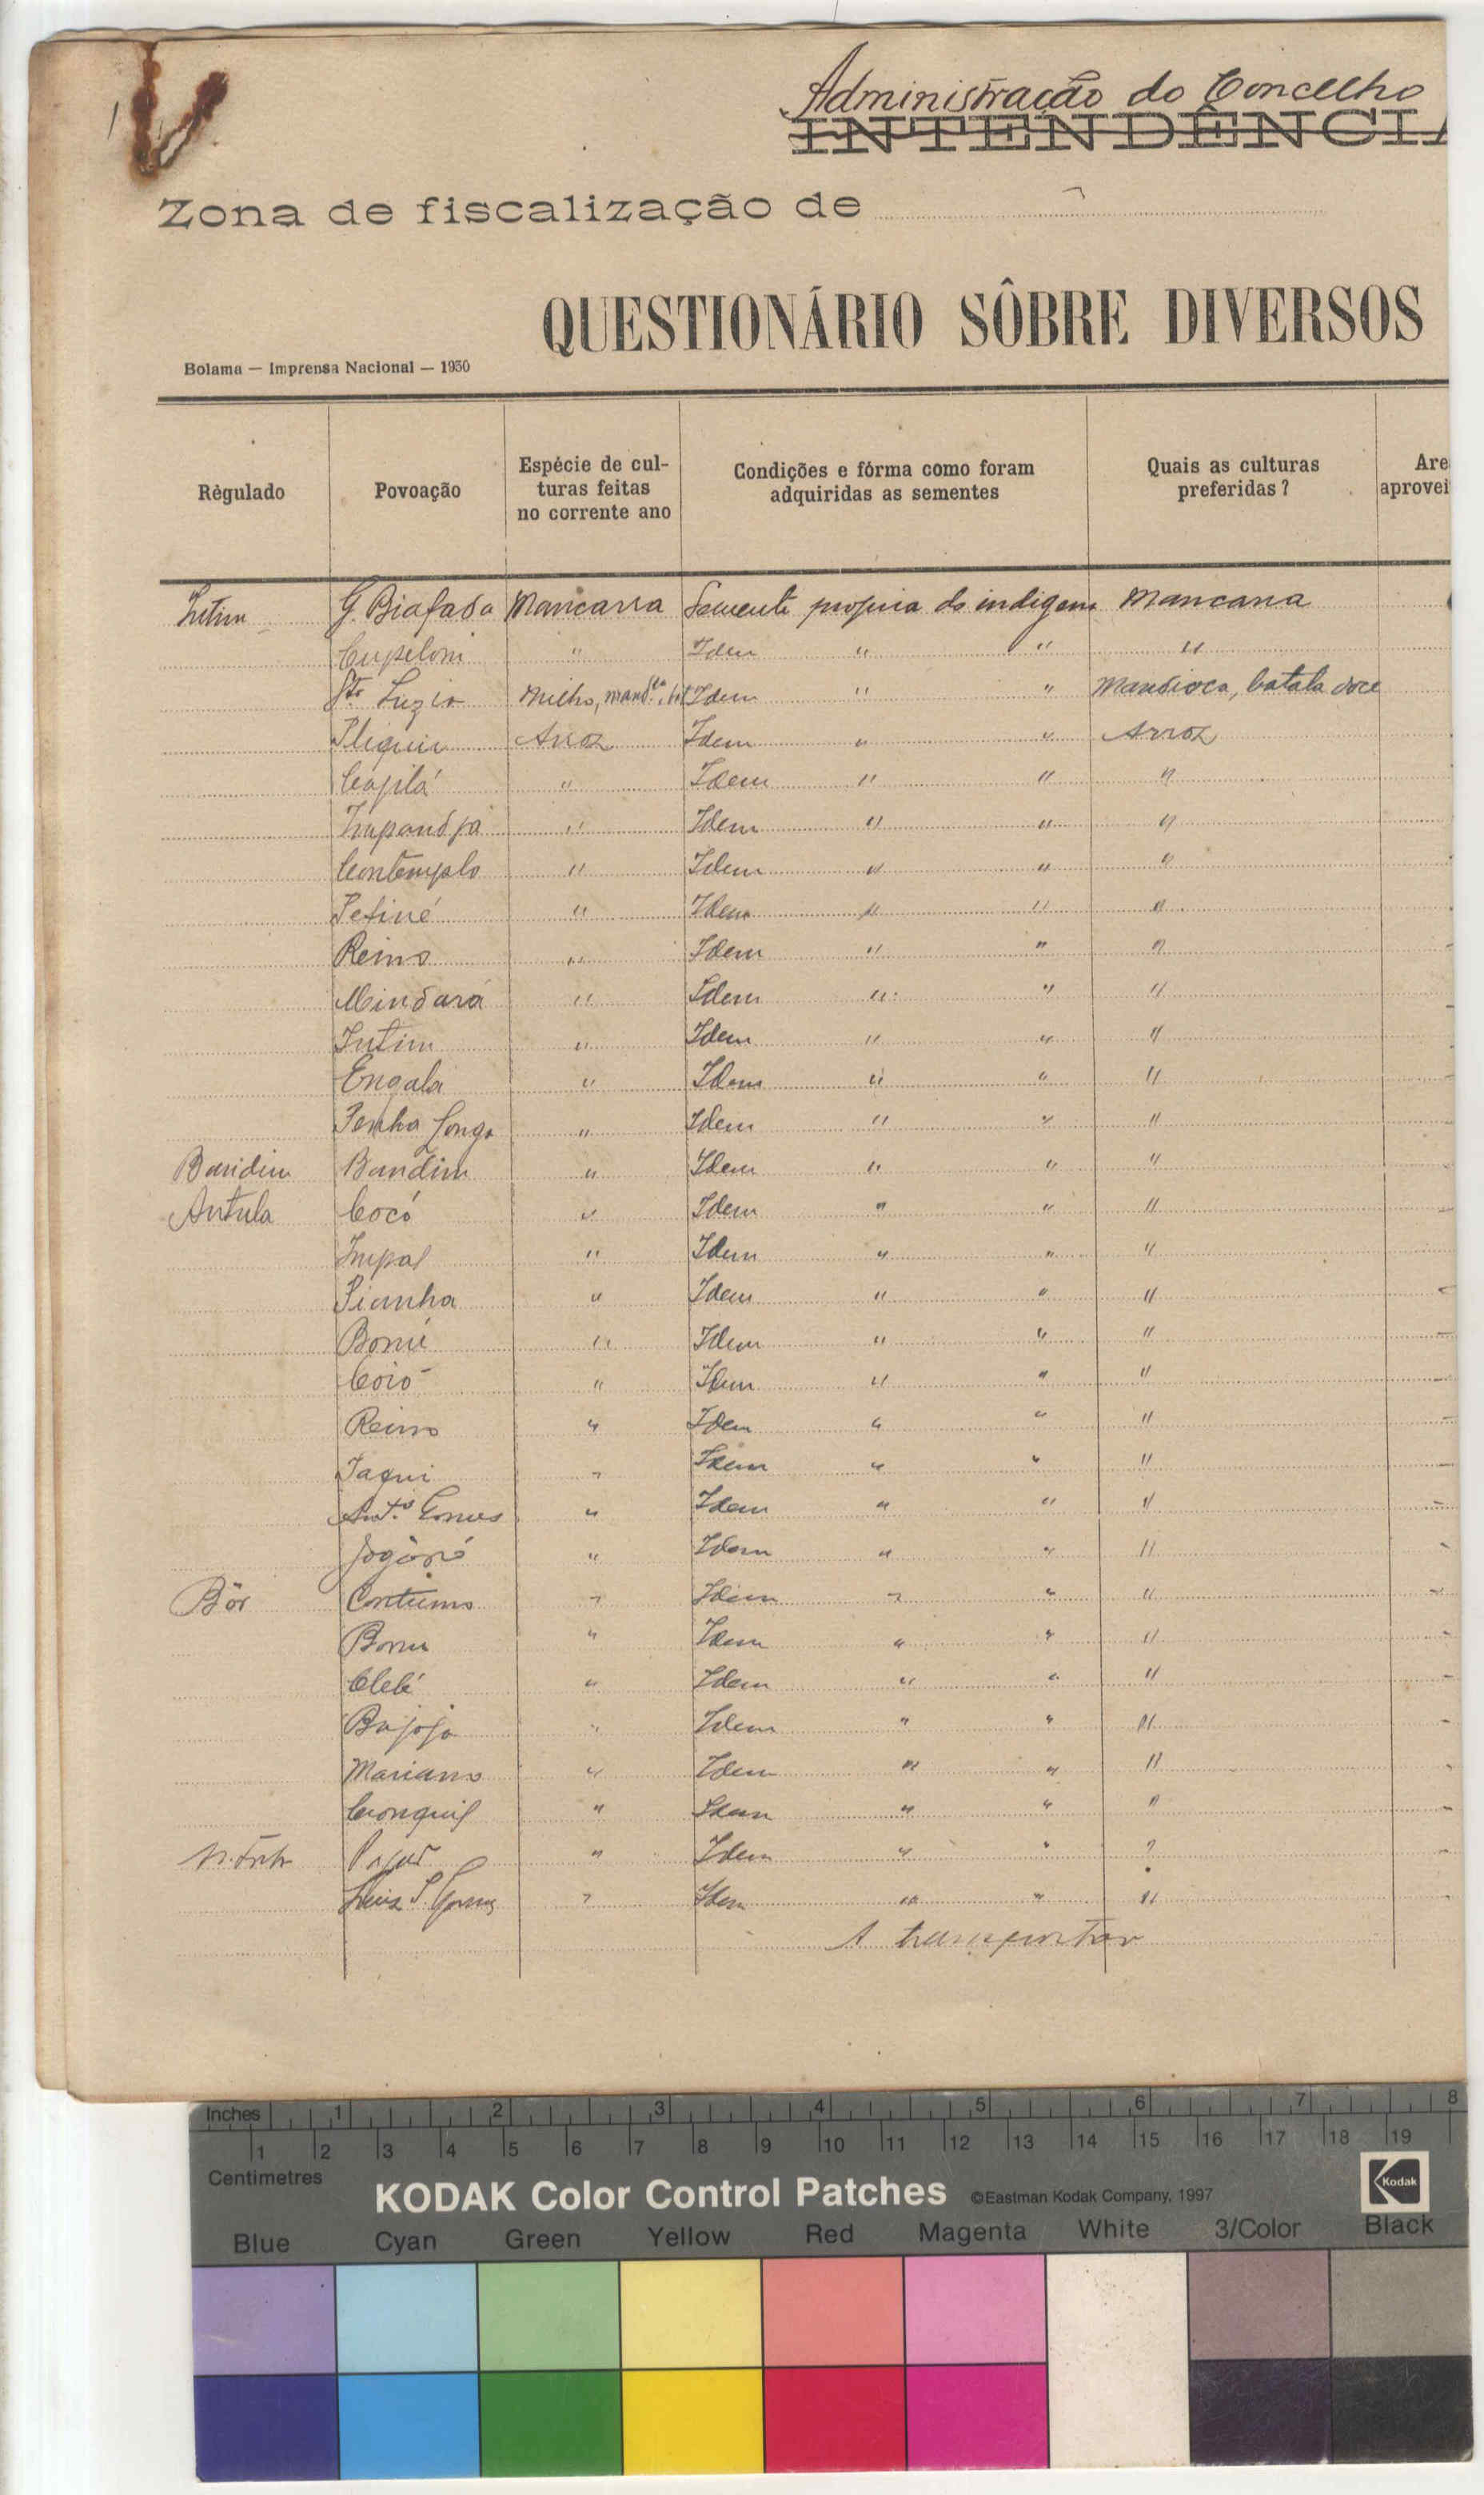 Administração do Concelho
INTENDÊNCIA
Zona de fiscalização de
QUESTIONÁRIO SÔBRE DIVERSOS
Bolama — Imprensa Nacional — 1930
Règulado Povoação Espécie de culturas feitas no corrente ano Condições e fórma como foram adquiridas as sementes Quais as culturas preferidas? Are aprovei
Intim G. Biafada Mancarra Semente propria do indigena Mancarra
Cupeloni " Idem " " "
Sta. Luzia Milho, mand.ca, bat Idem " " Mandioca, batata doce
Pliquir Arroz Idem " " Arroz
Capilá " Idem " " "
" Idem " " "
Contemplo " Idem " " "
Petiné " Idem " " "
Reino " Idem " " "
Mindará " Idem " " "
Intim " Idem " " "
Engala " Idem " " "
Penha Longa " Idem " " "
Bandim Bandim " Idem " " "
Antula Cocó " Idem " " "
Impal " Idem " " "
Pianha " Idem " " "
Bomé " Idem " " "
Coió " Idem " " "
Reino " Idem " " "
Jaqui " Idem " " "
Ant.º Gomes " Idem " " "
" Idem " " "
Bôr Contumo " Idem " " "
" Idem " " "
Clelé " Idem " " "
Bajoja " Idem " " "
Mariano " Idem " " "
Cronquil " Idem " " "
" Idem " " ?
Luiz Gomes " Idem " " "
A transportar
Inches 1 2 3 4 5 6 7 8
1 2 3 4 5 6 7 8 9 10 11 12 13 14 15 16 17 18 19
Centimetres
KODAK Color Control Patches ©Eastman Kodak Company, 1997 Kodak
Blue Cyan Green Yellow Red Magenta White 3/Color Black